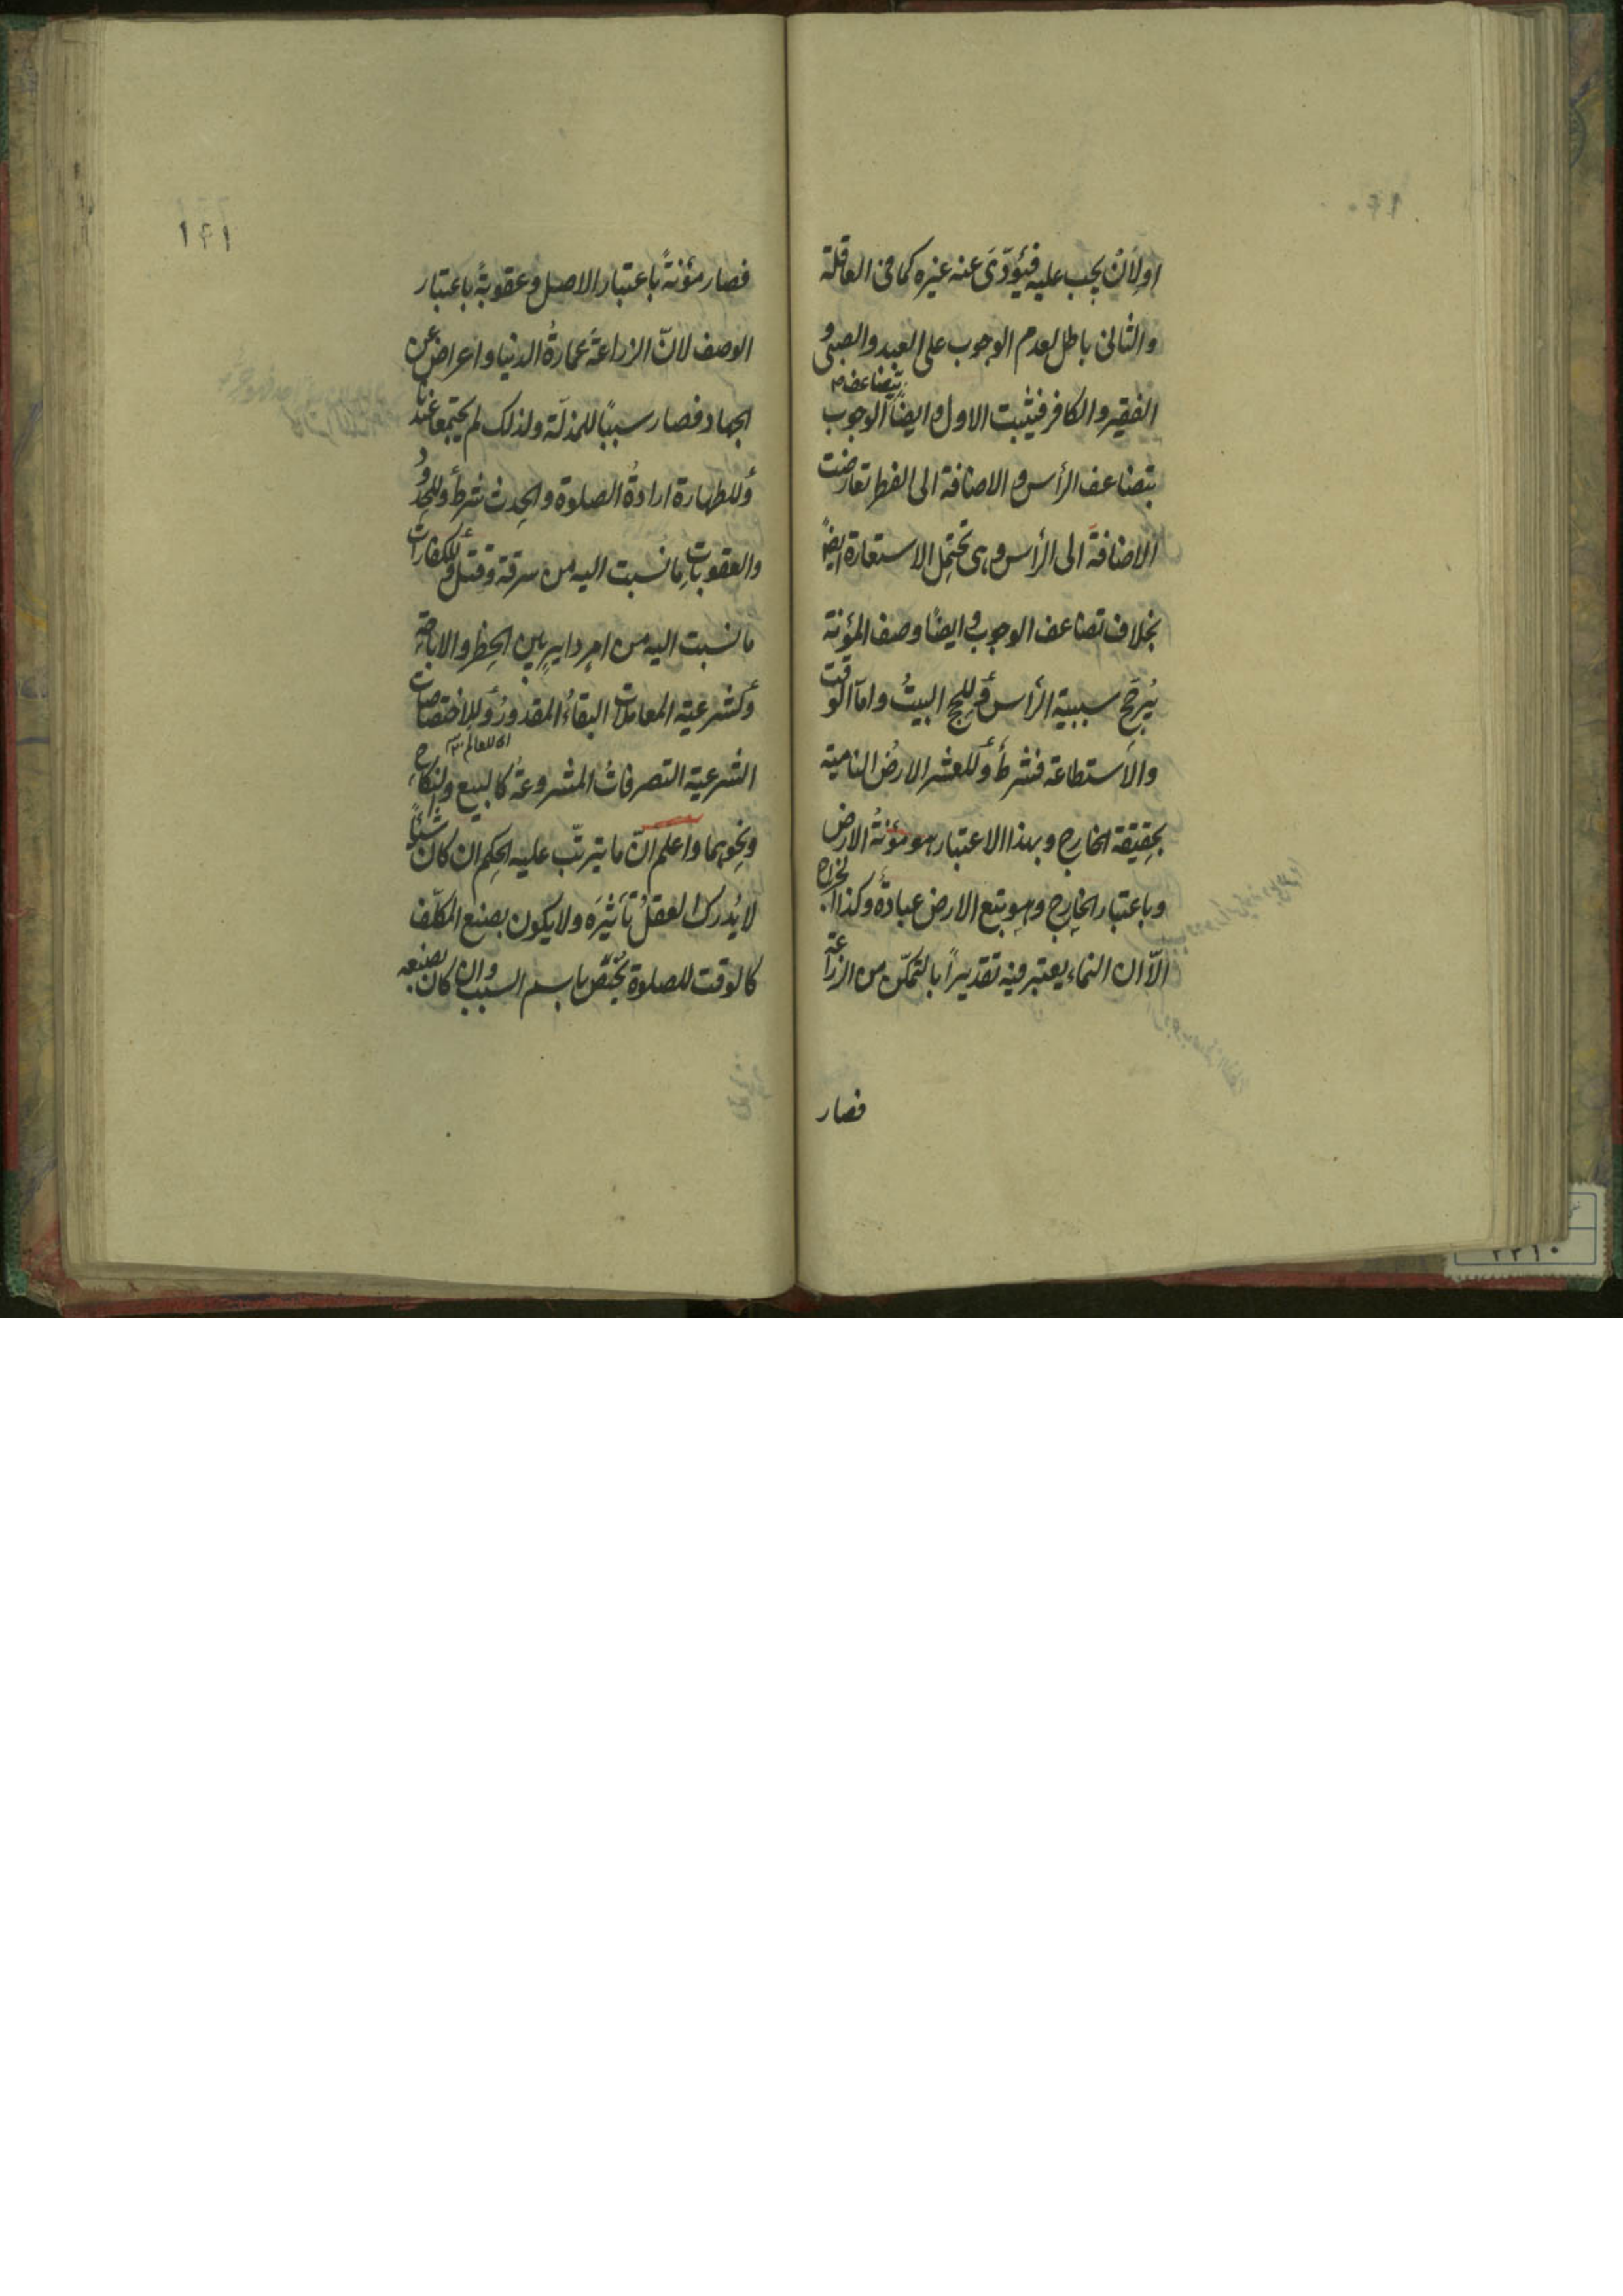 اولِاَن يجب عليه فيؤدّى عنه غيره كما فى العاقلة
والثانى باطل لعدم الوجوب على العبد والصبى و
الفقير والكافر فيثبت الاول و ايضاً يتضاعف الوجوب
بتضاعف الرأس و الاضافة الى الفطر تعارضت
الاضافةَ الى الرأس وهى تحتمل الاستعارة ايضاً
بخلاف تضاعف الوجوب و ايضاً وصف المؤنة
يُرجّح سببية الرأس وَللحج البيتُ واما الوقت
والاستطاعة فشرط وَللعشر الارضُ النامية
بحقيقة الخارج وبهذا الاعتبار هو مؤنةُ الارض
وباعتبار الخارج وهو تبع الارض عبادة وكذا الخراج
الّا ان النماء يعتبر فيه تقديراً بالتمكّن من الزراعة
فصار
١٤١
فصار مؤنةً باعتبار الاصل و عقوبةً باعتبار
الوصف لانّ الزراعة عمارةُ الدنيا واعراض عن
الجهاد فصار سبباً للمذلّة ولذلك لم يجتمعا عندنا
وَللطهارة ارادةُ الصلوة والحدث شرط وَللحدود
والعقوبات ما نُسبت اليه من سرقة وقتل وَللكفارات
ما نسبت اليه من امر داير بين الحظر والاباحة
وَلشرعية المعاملات البقاءُ المقدورُ وَللاختصاصات
اى للعالم
الشرعية التصرفاتُ المشروعةُ كالبيع والنكاح
ونحوهما واعلم انّ ما يترتّب عليه الحكم ان كان شيئاً
لا يُدرك العقلُ تأثيرَه ولا يكون بصنع المكلّف
كالوقت للصلوة يُختصّ باسم السبب وان كان بصنعه